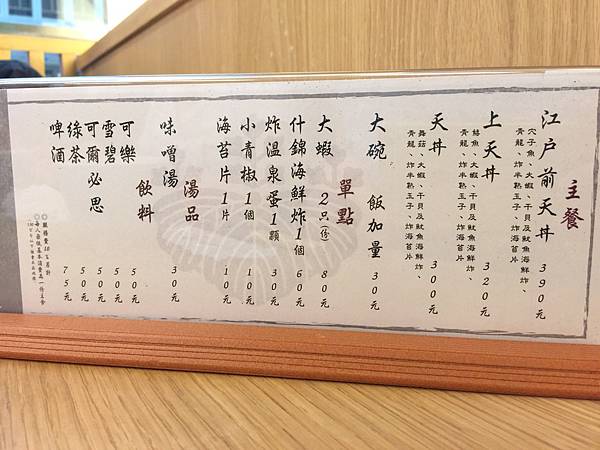 主餐
江戶前天丼 390元
穴子魚、大蝦、干貝及魷魚海鮮炸、
青龍、炸半熟玉子、炸海苔片
上天丼 320元
鱚魚、大蝦、干貝及魷魚海鮮炸、
青龍、炸半熟玉子、炸海苔片
天丼 300元
舞菇、大蝦、干貝及魷魚海鮮炸、
青龍、炸半熟玉子、炸海苔片
大碗 飯加量 30元
單點
大蝦 2只(份) 80元
什錦海鮮炸1個 60元
炸溫泉蛋1顆 30元
小青椒1個 10元
海苔片1片 10元
湯品
味噌湯 30元
飲料
可樂 50元
雪碧 50元
可爾必思 50元
綠茶 50元
啤酒 75元
◎服務費10%另計
◎每人最低基本消費為一份主餐